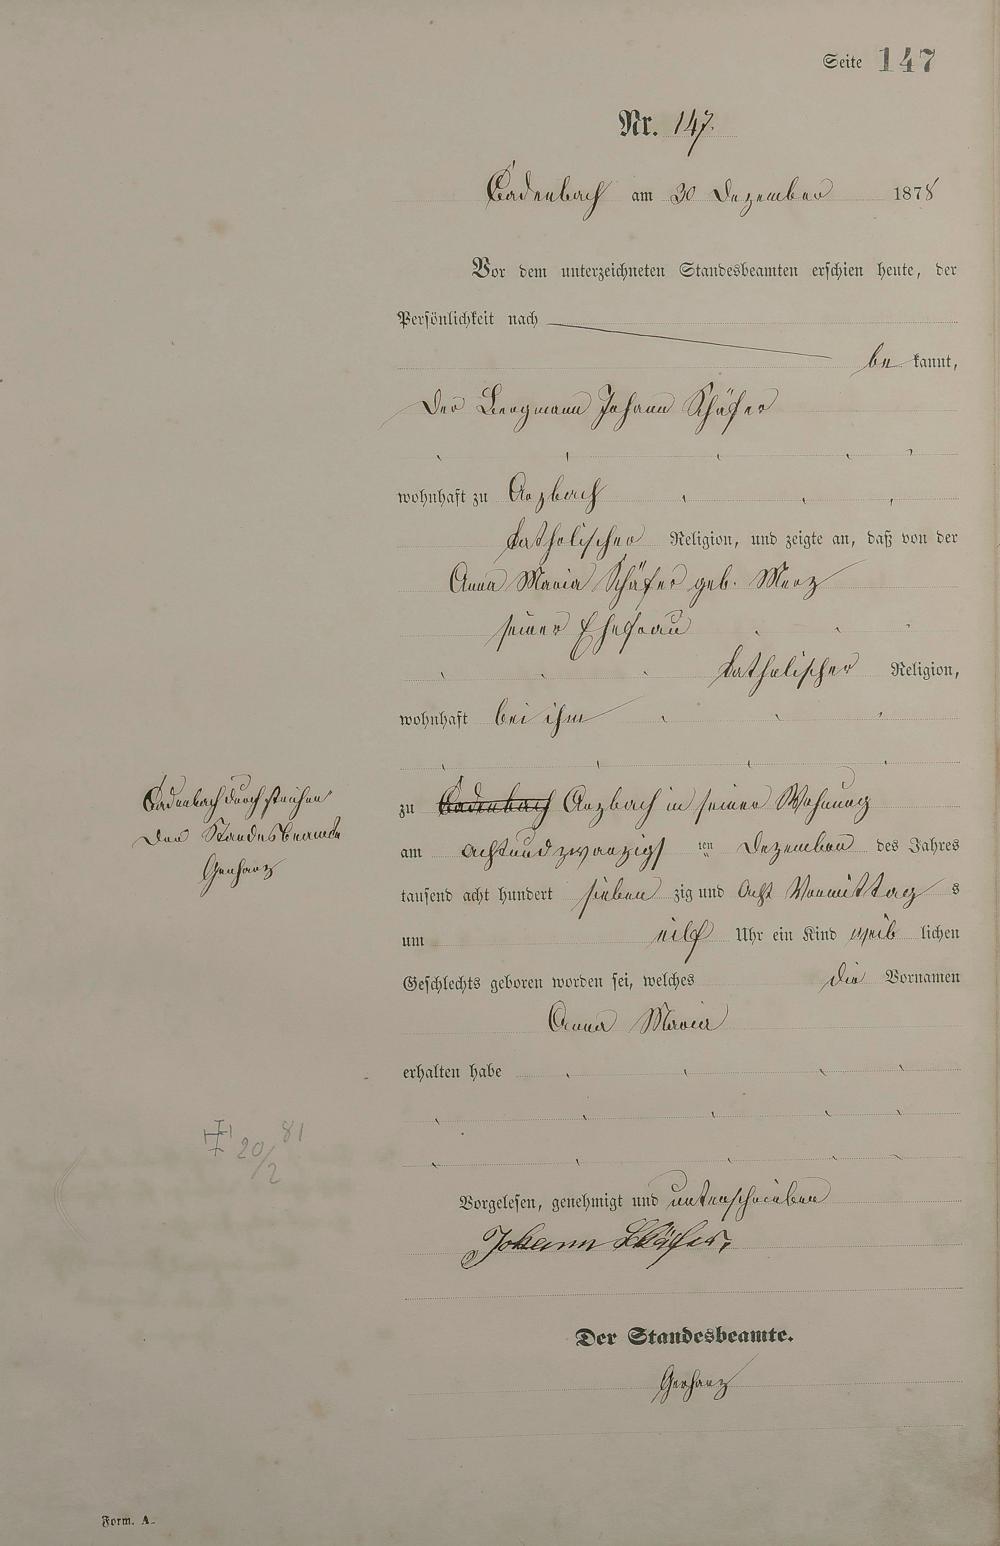 Seite 147
Nr. 147.
Cadenbach am 30 Dezember 1878
Vor dem unterzeichneten Standesbeamten erschien heute, der
Persönlichkeit nach
be kannt,
der Bergmann Johann Schäfer
wohnhaft zu Arzbach
katholischer Religion, und zeigte an, daß von der
Anna Maria Schäfer geb. Merz
seiner Ehefrau
katholischer Religion,
wohnhaft bei ihm
zu Cadenbach Arzbach in seiner Wohnung
Cadenbach durch streichen
Der Standesbeamte
Gerharz
am achtundzwanzigs ten Dezember des Jahres
tausend acht hundert sieben zig und acht Vormittag s
um eilf Uhr ein Kind weib lichen
Geschlechts geboren worden sei, welches die Vornamen
Anna Maria
erhalten habe
20/2 81
Vorgelesen, genehmigt und unterschrieben
Johann Schäfer.
Der Standesbeamte.
Gerharz
Form. A.